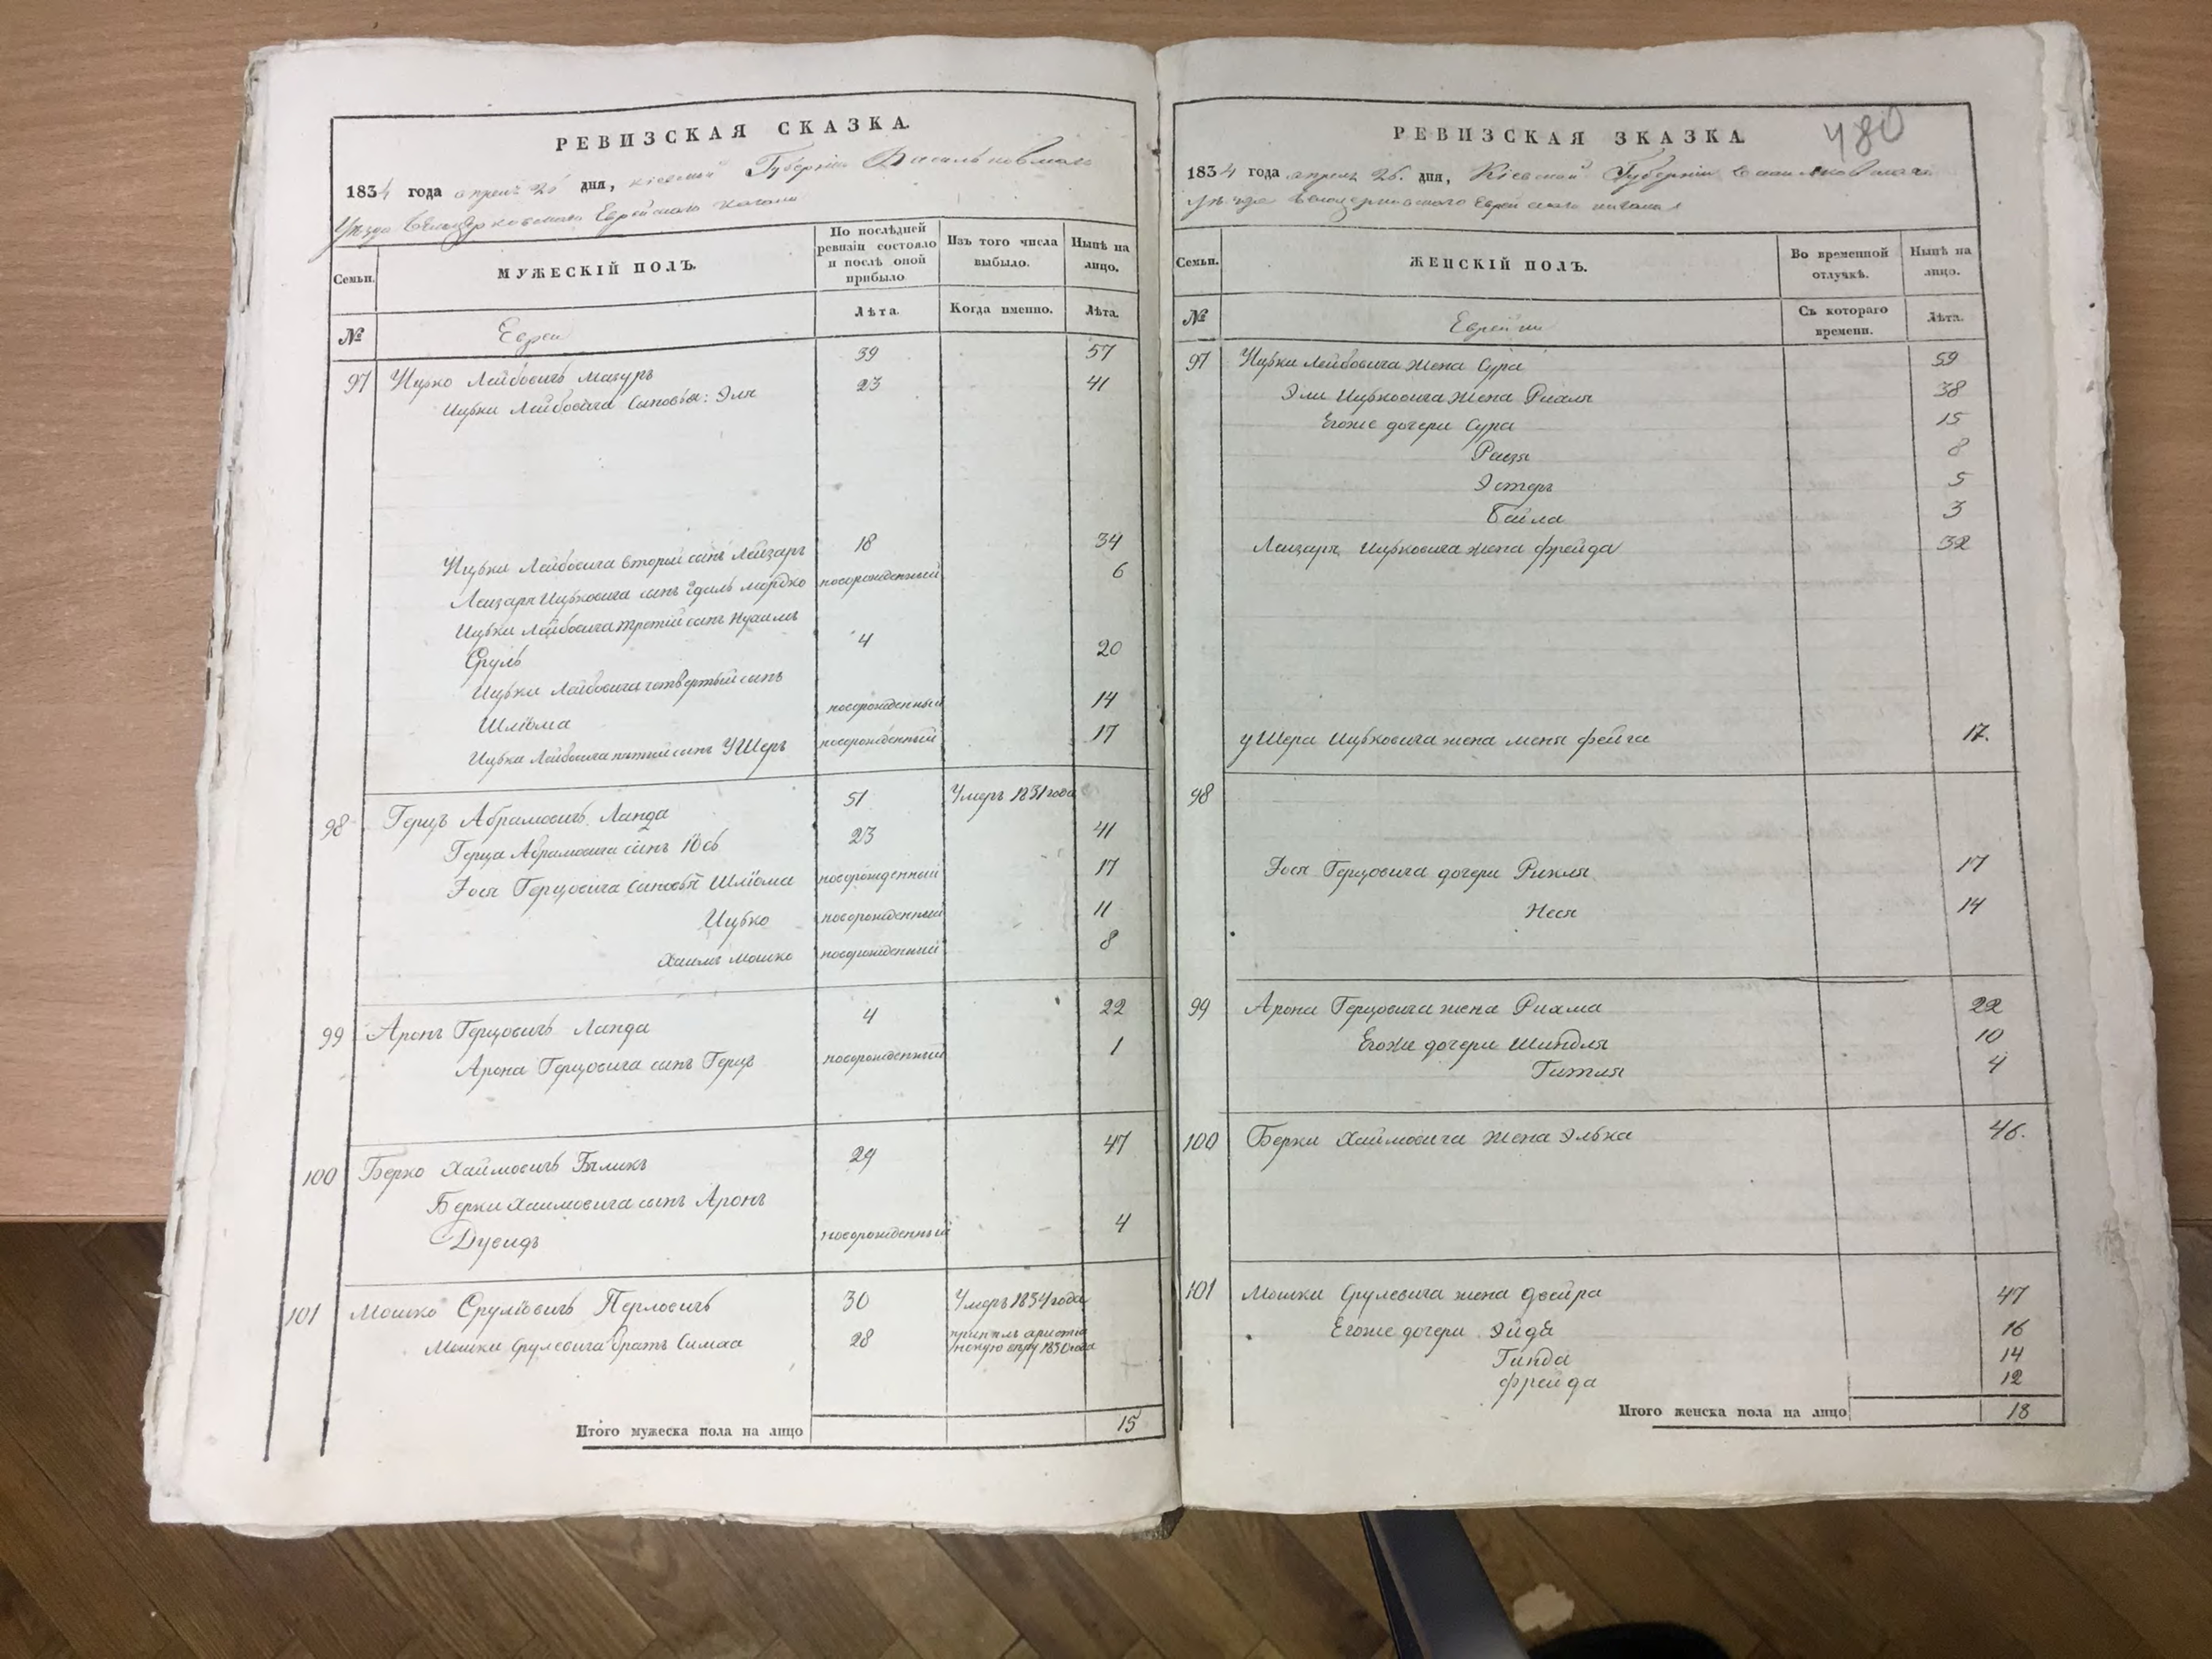 РЕВИЗСКАЯ СКАЗКА.
1834 года апреля 26 дня, Кіевской Губерніи Васильковскаго
Уѣзда Белоцерковскаго Еврейскаго Кагала
Семьи.
МУЖЕСКІЙ ПОЛЪ.
По послѣдней ревизіи состояло и послѣ оной прибыло
Изъ того числа выбыло.
Нынѣ на лицо.
№
Евреи
Лѣта.
Когда именно.
Лѣта.
97 Ицко Лейбовичъ Мазуръ 39 57
Ицки Лейбовича Сыновья: Эля 23 41
Ицки Лейбовича второй сынъ Лейзаръ 18 34
Лейзаря Ицковича сынъ Эдаль Мордко новорожденный 6
Ицки Лейбовича третій сынъ
Сруль 4 20
Ицки Лейбовича четвертый сынъ
Шліома новорожденный 14
Ицки Лейбовича пятый сынъ Ушеръ новорожденный 17
98 Герцъ Абрамовичъ Ланда 51 Умеръ 1831 года
Герца Абрамовича сынъ Іось 23 41
Іося Герцовича сыновья Шліома новорожденный 17
Ицко новорожденный 11
Хаимъ Мошко новорожденный 8
99 Аронъ Герцовичъ Ланда 4 22
Арона Герцовича сынъ Герцъ новорожденный 1
100 Берко Хаймовичъ Быликъ 29 47
Берки Хаимовича сынъ Аронъ
Дувидъ новорожденный 4
101 Мошко Сруліовичъ Перловичъ 30 Умеръ 1834 года
Мошки Срулевича братъ Симха 28 1830 года
Итого мужеска пола на лицо 15
480
РЕВИЗСКАЯ ЗКАЗКА.
1834 года апреля 26. дня, Кіевской Губерніи Васильковскаго
уѣзда Белоцерковскаго Еврейскаго Кагала
Семьи.
ЖЕНСКІЙ ПОЛЪ.
Во временной отлучкѣ.
Нынѣ на лицо.
№
Еврейки
Съ котораго времени.
Лѣта.
97 Ицки Лейбовича жена Сура 59
Эли Ицковича жена Рихля 38
Егоже дочери Сура 15
Раизя 8
Эстеръ 5
Байла 3
Лейзаря Ицковича жена Фрейда 32
Ушера Ицковича жена Меня Фейга 17.
98
Іося Герцовича дочери Рикля 17
Неся 14
99 Арона Герцовича жена Рихма 22
Егоже дочери Шиндля 10
Гитля 4
100 Берки Хаймовича жена Элька 46.
101 Мошки Срулевича жена Двейра 47
Егоже дочери Эйдя 16
Гинда 14
Фрейда 12
Итого женска пола на лицо 18